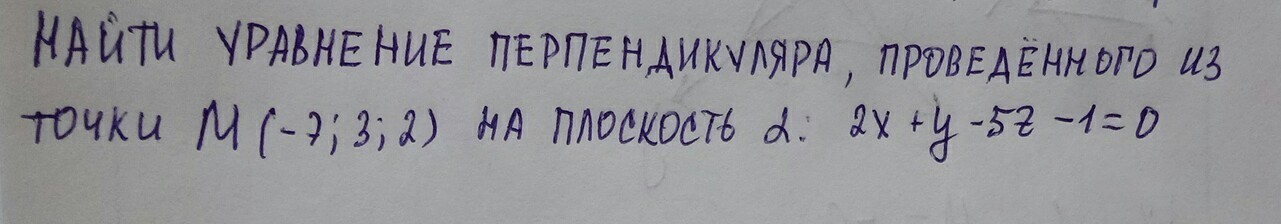 НАЙТИ УРАВНЕНИЕ ПЕРПЕНДИКУЛЯРА, ПРОВЕДЁННОГО ИЗ
ТОЧКИ M (-7; 3; 2) НА ПЛОСКОСТЬ α: 2x + y - 5z - 1 = 0